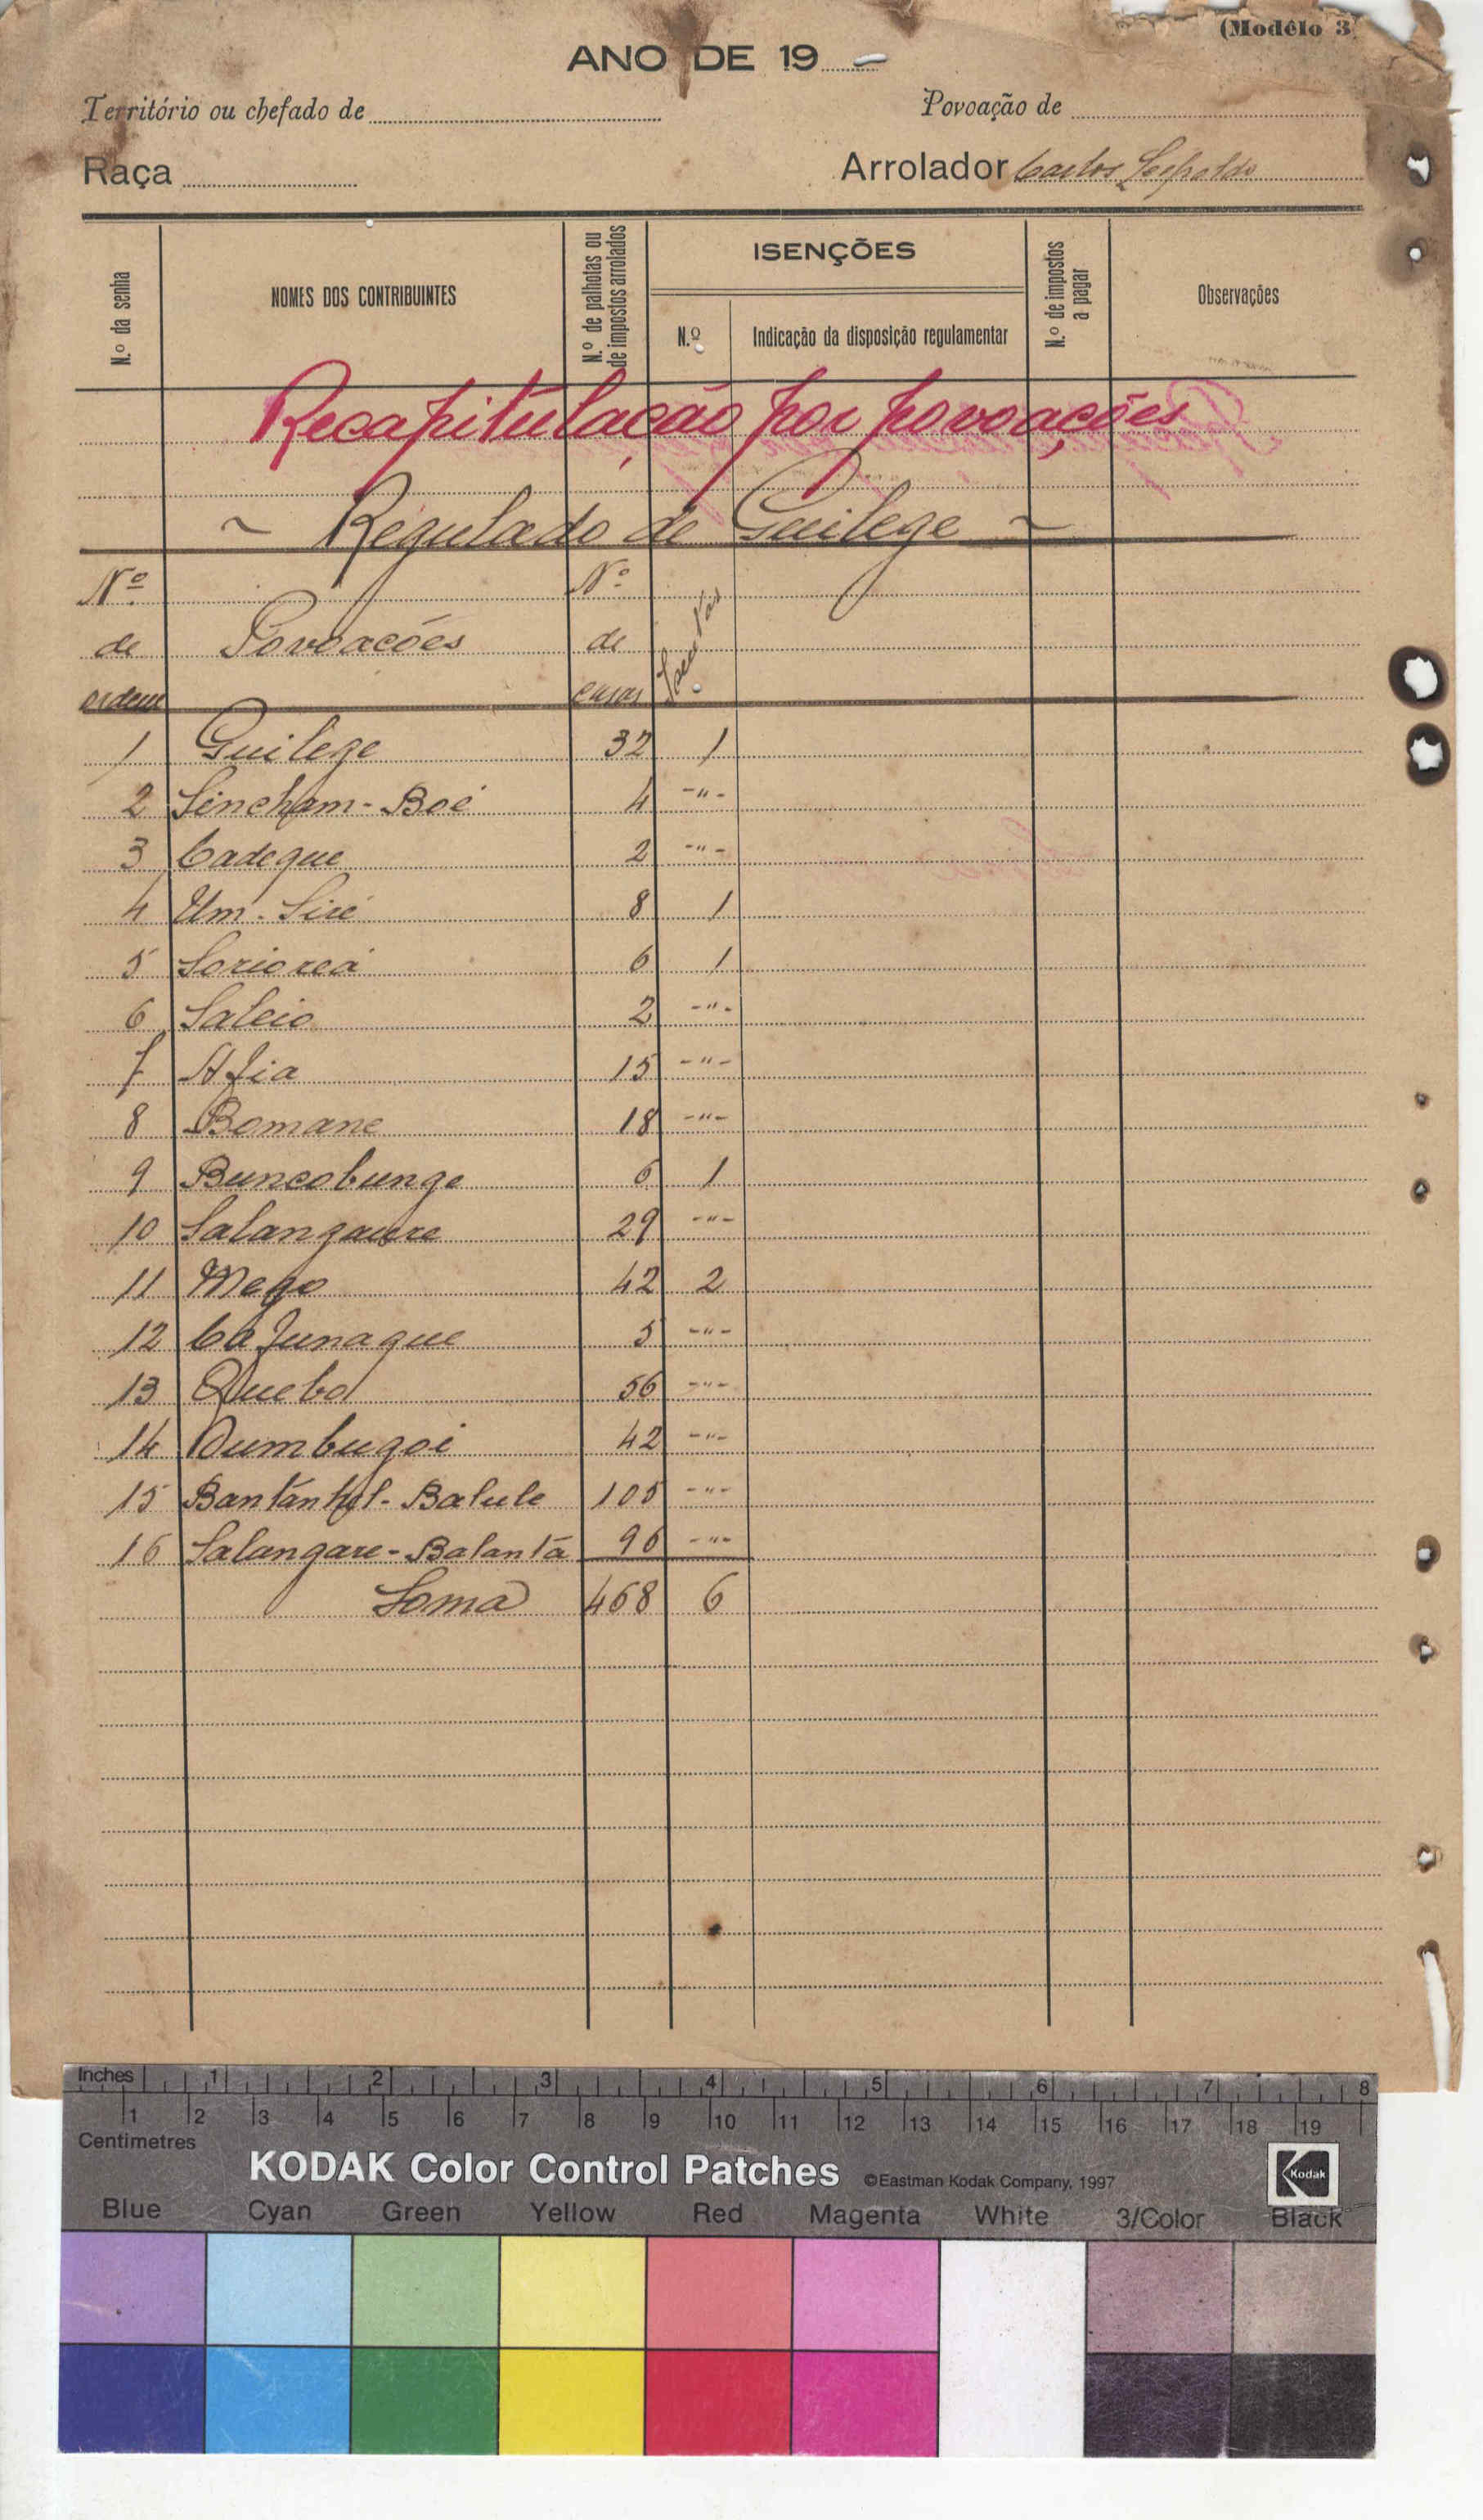 (Modêlo 3)
ANO DE 19 -
Território ou chefado de
Povoação de
Raça
Arrolador Carlos Leopoldo
N.º da senha
NOMES DOS CONTRIBUINTES
N.º de palhotas ou de impostos arrolados
ISENÇÕES
N.º
Indicação da disposição regulamentar
N.º de impostos a pagar
Observações
Recapitulação por povoações
~ Regulado de Guilege ~
Nº de ordem
Povoacões
Nº de casas
1 Guilege 32 1
2 Sincham-Boé 4 -"-
3 Cadeque 2 -"-
4 Um-Siré 8 1
5 Sorioreá 6 1
6 Saleio 2 -"-
7 Afia 15 -"-
8 Bomane 18 -"-
9 Buncobunge 6 1
10 29 -"-
11 Mego 42 2
12 Cafunaque 5 -"-
13 Quebo 56 -"-
14 Dumbugoi 42 -"-
15 Bantánhol-Balule 105 -"-
16 Salangare-Balanta 96 -"-
Soma 468 6
Inches 1 2 3 4 5 6 7 8
1 2 3 4 5 6 7 8 9 10 11 12 13 14 15 16 17 18 19
Centimetres
KODAK Color Control Patches ©Eastman Kodak Company, 1997 Kodak
Blue Cyan Green Yellow Red Magenta White 3/Color Black